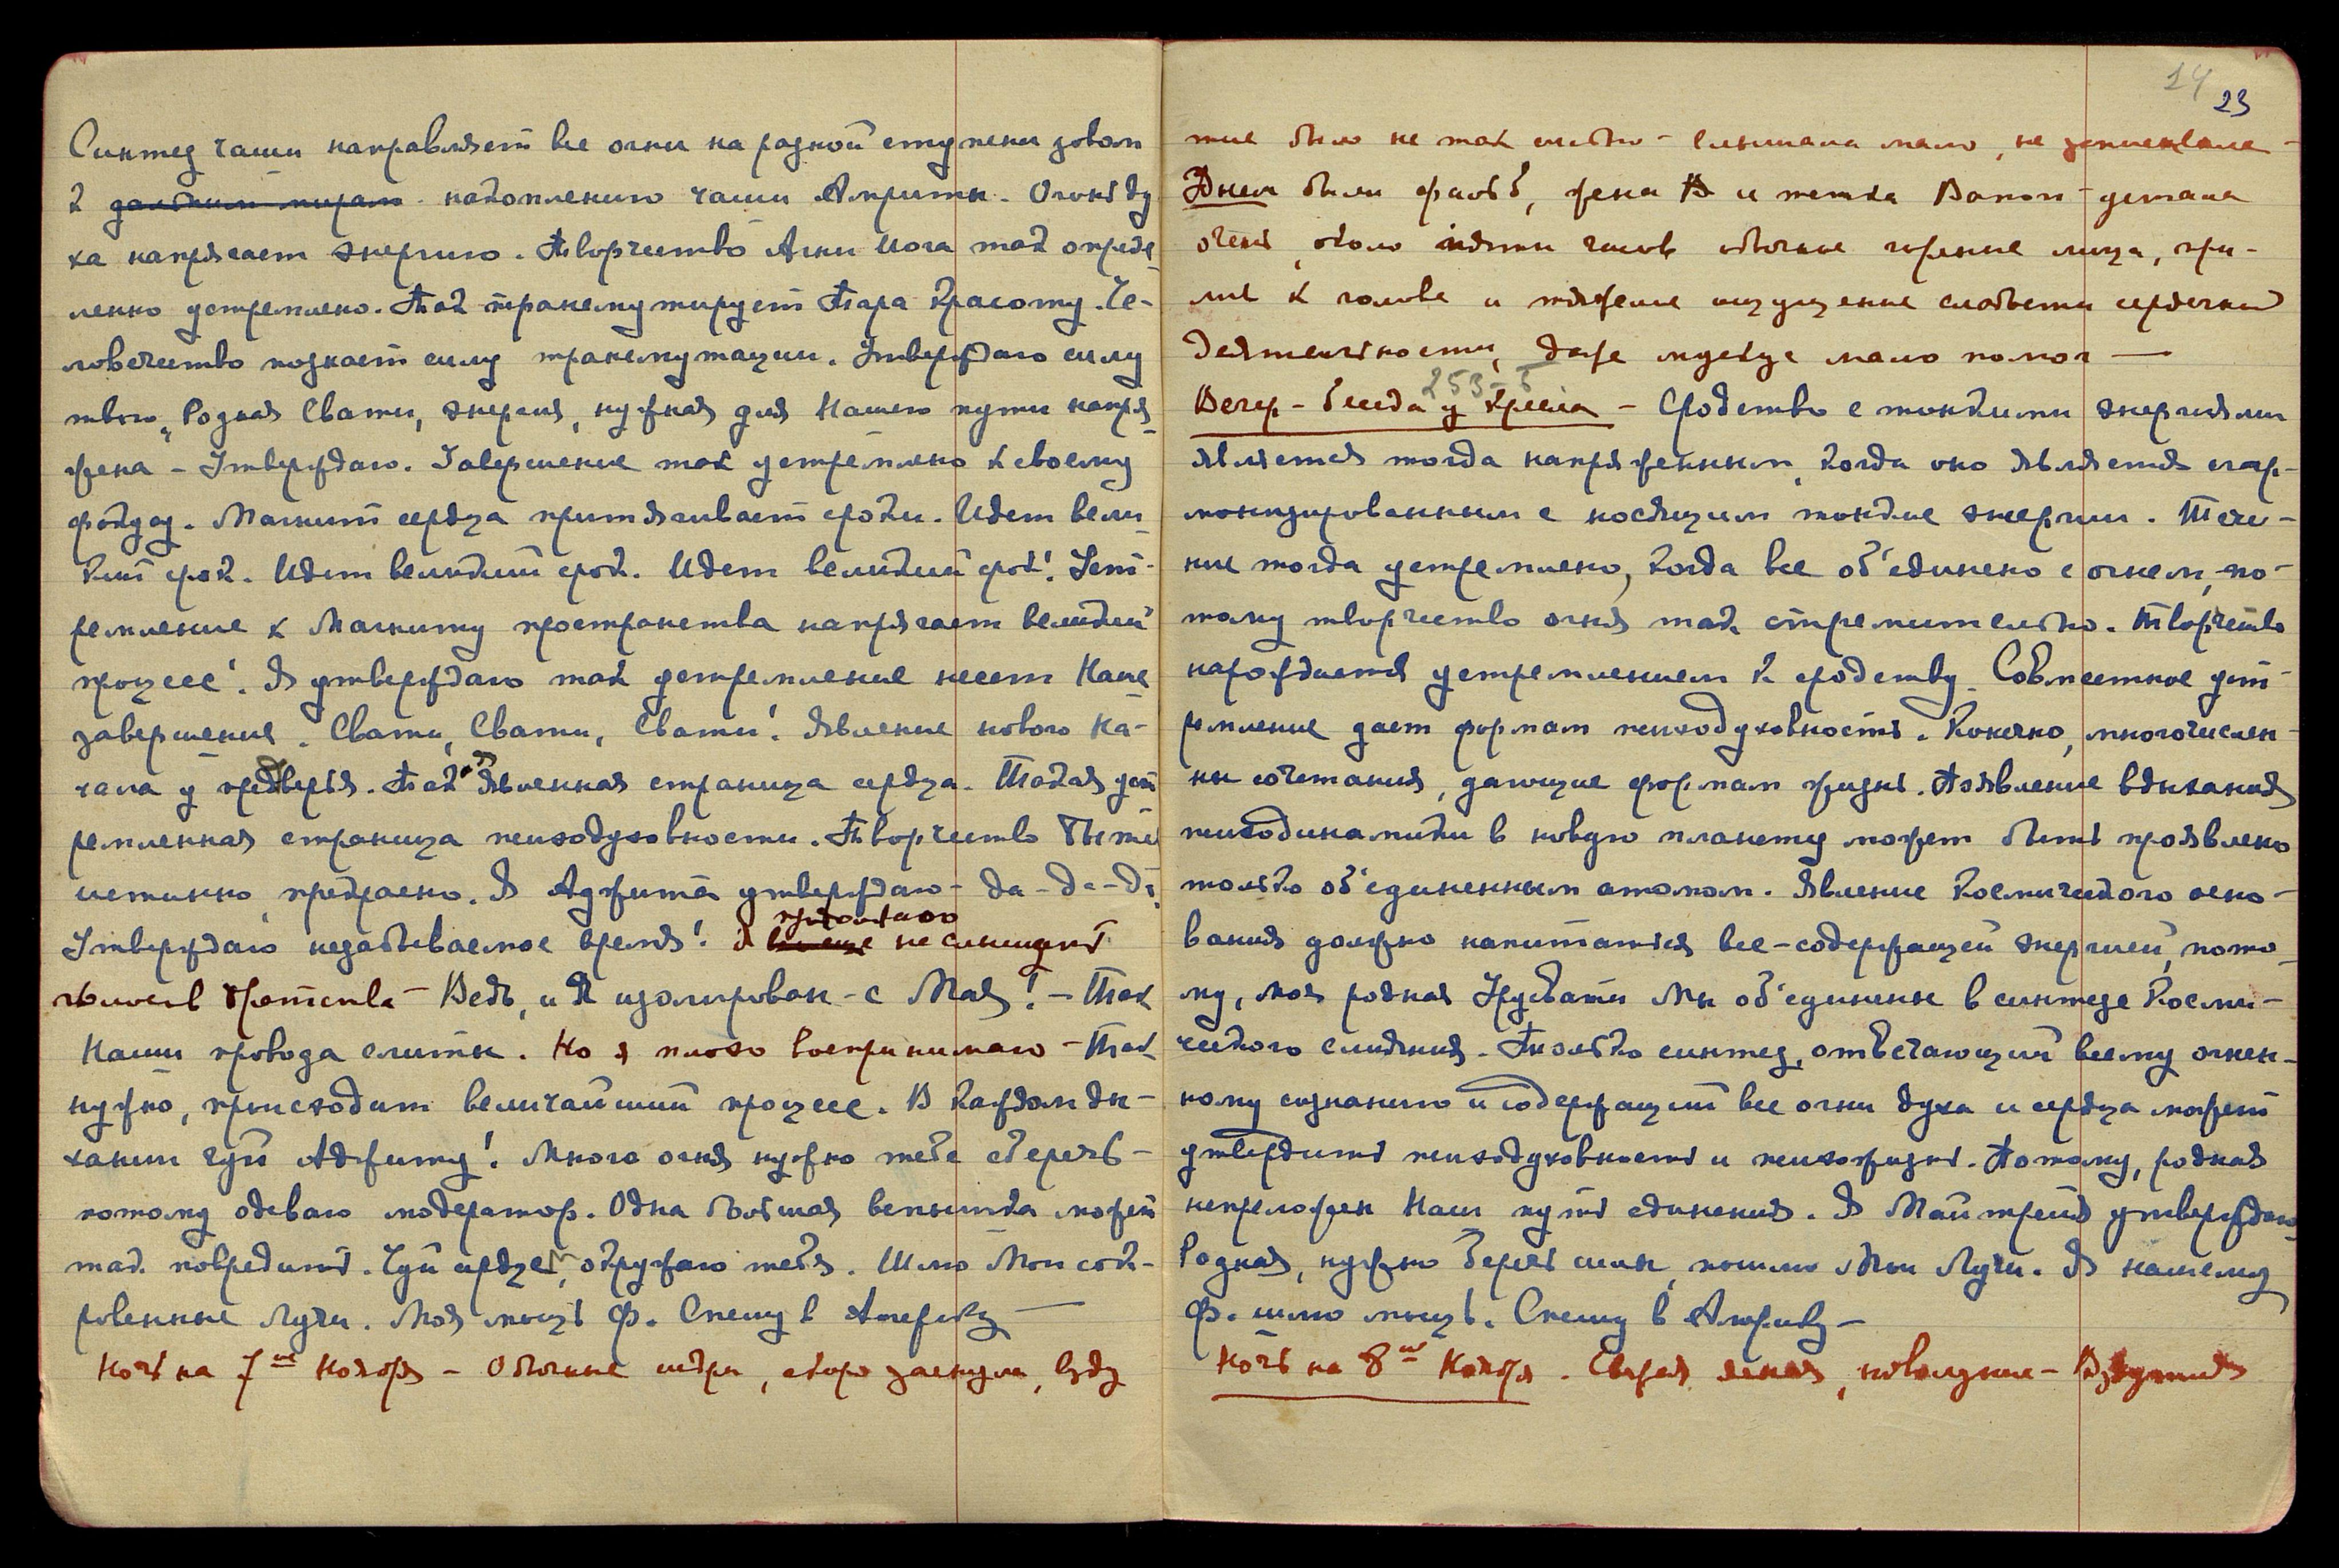 Синтез чаши направляет все огни на разной ступени зовом
к дальним мирам накоплению чаши Амриты. Огонь ду
ха напрягает энергию. Творчество Агни Йога так опреде
ленно устремлено. Так трансмутирует Тара Красоту. Че-
ловечество познает силу трансмутации. Утверждаю силу
твою, Родная Свати, энергия, нужная для Нашего пути напря
жена – Утверждаю. Завершение так устремлено к своему
фокусу. Магнит сердца притягивает сроки. Идет вели
кий срок. Идет великий срок. Идет великий срок! Уст-
ремление к Магниту пространства напрягает великий
процесс! Я утверждаю так устремление несет Наше
завершение. Свати, Свати, Свати! Явление нового На-
чала у предверья. Так явленная страница сердца. Такая уст
ремленная страница психодуховности. Творчество Бытия
истинно прекрасно. Я Аджита утверждаю – да – да – да,
Утверждаю незабываемое время! Я продолжаю
не слышать
голосов Братства – Ведь, и Я изолирован – с Мая! – Так
Наши провода слиты. Но я плохо воспринимаю – Так
нужно, происходит величайший процесс. В каждом ды-
хании чуй Аджиту! Много огня нужно тебе сберечь –
потому одеваю модератор. Одна большая вспышка может
так повредить. Чуй сердце, окружаю тебя. Шлю Мои сок-
ровенные Лучи. Моя мощь Ф. Спешу в Америку —
Ночь на 7ое Ноября – Обычные искры, скоро заснула,
24
23
тие было не так сильно – слышала мало, не записывала –
Днем были жена В и тетка устала
очень, около пяти часов обычное горение лица, при-
лив к голове и тяжелое ощущение слабости сердечной
деятельности, даже мускус мало помог —
253-5
Вечер – беседа у кресла – Сродство с тонкими энергиями
является тогда напряженным, когда оно является сгар-
монизированным с носящим тонкие энергии. Тече-
ние тогда устремлено, когда все об'единено с огнем, по-
тому творчество огня так стремительно. Творчество
нарождается устремлением к сродству. Совместное уст
ремление дает формам психодуховность. Конечно, многочислен-
ны сочетания, дающие формам жизнь. Но явление вдыхания
психодинамики в новую планету может быть проявлено
только об'единенным атомом. Явление Космического осно-
вания должно напитаться все-содержащей энергией, пото-
му, моя родная Урусвати Мы об'единены в синтезе Косми-
ческого слияния. Только синтез, отвечающий всему огнен-
ному сознанию и содержащий все огни духа и сердца может
утвердить психодуховность и психожизнь. Потому, родная
непреложен Наш путь единения. Я Майтрейя утверждаю
Родная, нужно беречь силы, пошлю Мои Лучи. Я нашему
Ф. шлю мощь. Спешу в Америку –
Ночь на 8ое Ноября. Свежая ясная, новолуние –